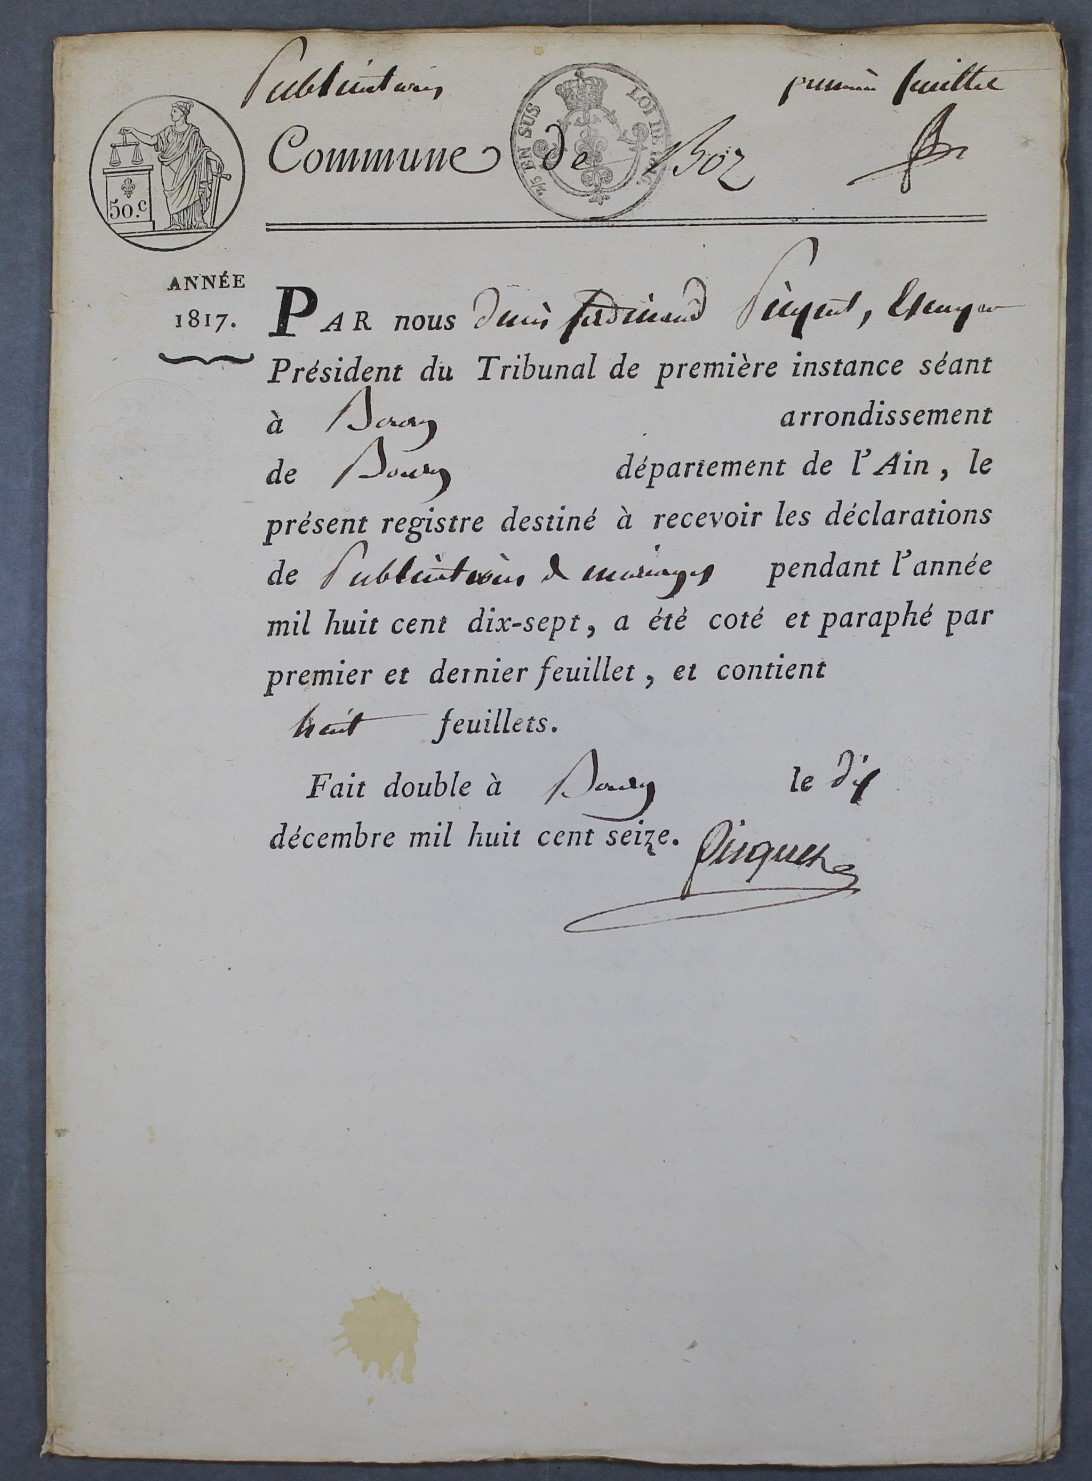 Publications
premier feuillet
2/5 EN SUS LOI DE 1816.
Commune de Boz
50.c
ANNÉE
1817.
PAR nous Denis ferdinand Picquet, Ecuyer
Président du Tribunal de première instance séant
à Bourg arrondissement
de Bourg département de l'Ain, le
présent registre destiné à recevoir les déclarations
de Publications de mariages pendant l'année
mil huit cent dix-sept, a été coté et paraphé par
premier et dernier feuillet, et contient
huit feuillets.
Fait double à Bourg le dix
décembre mil huit cent seize.
Picquet